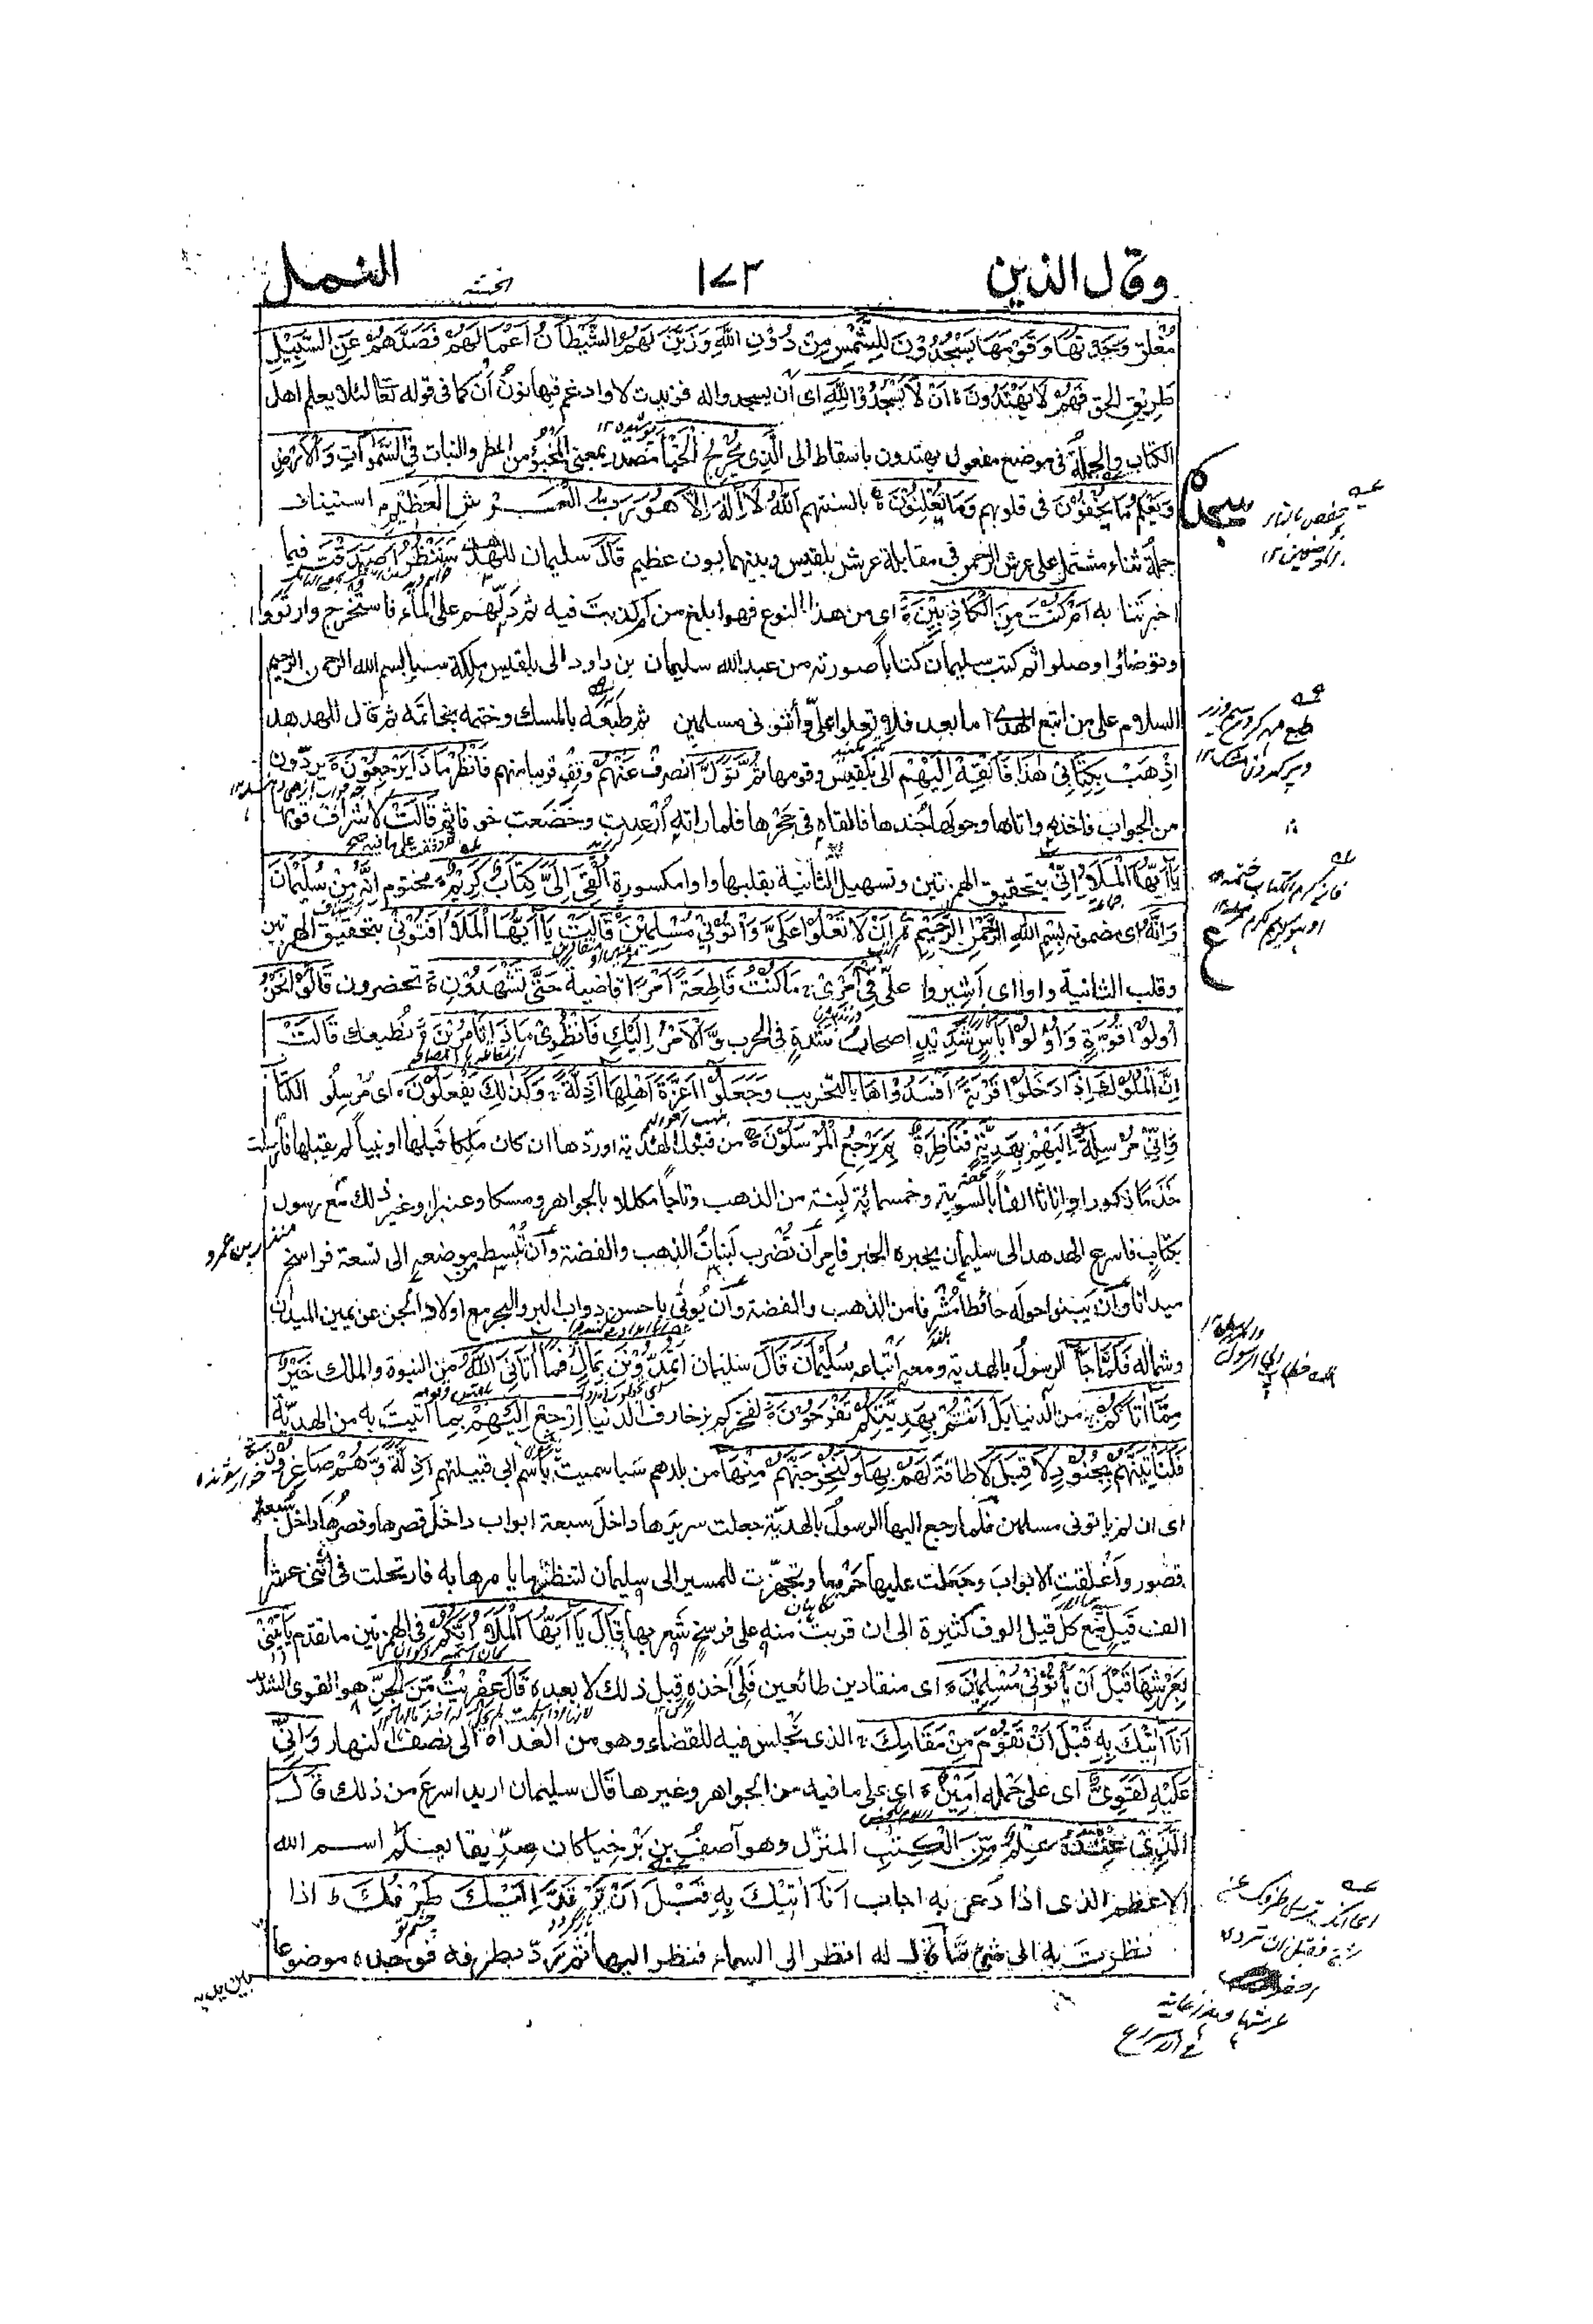 وقال الذين ١٧٣ النمل
مُغْلق وَجَدْتُّهَا وَقَوْمَهَا يَسْجُدُوْنَ لِلشَّمْسِ مِنْ دُوْنِ اللّٰهِ وَزَيَّنَ لَهُمُ الشَّيْطَانُ اَعْمَالَهُمْ فَصَدَّهُمْ عَنِ السَّبِيْلِ
طَرِيقِ الحق فَهُمْ لَا يَهْتَدُوْنَ اَنْ لَا يَسْجُدُوْا لِلّٰهِ اى أن يسجدوا له فزيدت لا وادغم فيها نونُ أَنْ كما فى قوله تعا لئلا يعلم اهل
الكتاب والجملة فى موضع مفعول يهتدون باسقاط الى الَّذِىْ يُخْرِجُ الْخَبْأَ مصدر بمعنى المخبوء من المطر والنبات فِى السَّمٰوَاتِ وَالْاَرْضِ
وَيَعْلَمُ مَا يُخْفُوْنَ فى قلوبهم وَمَا يُعْلِنُوْنَ بالسنتهم اَللّٰهُ لَا اِلٰهَ اِلَّا هُوَ رَبُّ الْعَرْشِ الْعَظِيْمِ استيناف
سجدة
جملةُ ثناء مشتمل على عرش الرحمن فى مقابلة عرش بلقيس وبينهما بون عظيم قَالَ سليمان للهدهد سَنَنْظُرُ اَصَدَقْتَ فيما
اخبرتنا به اَمْ كُنْتَ مِنَ الْكَاذِبِيْنَ اى من هذا النوع فهو ابلغ من ام كذبت فيه ثم دلّهم على الماء فاستخرج وارتووا
وتوضائوا وصلوا ثم كتب سليمان كتاباً صورته من عبد الله سليمان بن داود الى بلقيس ملكة سبا بسم الله الرحمن الرحيم
السلام على من اتبع الهدى اما بعد فلا تعلوا علىّ وأتونى مسلمين ثم طبعه بالمسك وختمه بخاتمه ثم قال للهدهد
اِذْهَبْ بِكِتَابِىْ هٰذَا فَاَلْقِهْ اِلَيْهِمْ الى بلقيس وقومها ثُمَّ تَوَلَّ انصرف عَنْهُمْ وقف قريبا منهم فَانْظُرْ مَا ذَا يَرْجِعُوْنَ يردّون
من الجواب فاخذه واتاها وحولها جُندها فالقاه فى حجرها فلما رأته أُرْعِدت وخضعت خوفا ثم قَالَتْ لاشراف قومها
يَا اَيُّهَا الْمَلَأُ اِنِّىْ بتحقيق الهمزتين وتسهيل الثانية بقلبها واوا مكسورة اُلْقِىَ اِلَىَّ كِتَابٌ كَرِيْمٌ مختوم اِنَّهُ مِنْ سُلَيْمَانَ
وَاِنَّهُ اى مضمونه بِسْمِ اللّٰهِ الرَّحْمٰنِ الرَّحِيْمِ اَنْ لَا تَعْلُوْا عَلَىَّ وَأْتُوْنِىْ مُسْلِمِيْنَ قَالَتْ يَا اَيُّهَا الْمَلَأُ اَفْتُوْنِىْ بتحقيق الهمزتين
ع
وقلب الثانية واوا اى أشيروا علىّ فِىْ اَمْرِىْ مَا كُنْتُ قَاطِعَةً اَمْرًا قاضية حَتّٰى تَشْهَدُوْنِ تحضرون قَالُوْا نَحْنُ
اُولُوْا قُوَّةٍ وَاُولُوْا بَأْسٍ شَدِيْدٍ اصحاب شدةٍ فى الحرب وَالْاَمْرُ اِلَيْكِ فَانْظُرِىْ مَاذَا تَأْمُرِيْنَ نُطيعك قَالَتْ
اِنَّ الْمُلُوْكَ اِذَا دَخَلُوْا قَرْيَةً اَفْسَدُوْهَا بالتخريب وَجَعَلُوْا اَعِزَّةَ اَهْلِهَا اَذِلَّةً وَكَذٰلِكَ يَفْعَلُوْنَ اى مُرْسِلُو الكتاب
وَاِنِّىْ مُرْسِلَةٌ اِلَيْهِمْ بِهَدِيَّةٍ فَنَاظِرَةٌ بِمَ يَرْجِعُ الْمُرْسَلُوْنَ من قبول الهدية او ردّها ان كان ملكا قبلها او نبياً لم يقبلها فأرسلت
خَدَمًا ذكورا واناثا الفاً بالسّوية وخمسمائة لَبِنَة من الذهب وتاجاً مكللا بالجواهر ومسكا وعنبرا وغير ذلك مع رسول
منذر بن عمرو
بكتاب فاسرع الهدهد الى سليمان يخبره الخبر فامر أن تُضرب لَبِناتُ الذهب والفضة وأن تُبسط من موضعه الى تسعة فراسخ
ميدانا وأن يبنوا حوله حائطا مُشرفا من الذهب والفضة وأن يُؤتى باحسن دواب البر والبحر مع اولاد الجن عن يمين الميدان
وشماله فَلَمَّا جَاءَ الرسولُ بالهدية ومعه أتباعه سُلَيْمَانَ قَالَ سليمان اَتُمِدُّوْنَنِ بِمَالٍ فَمَا اٰتَانِىَ اللّٰهُ من النبوة والملك خَيْرٌ
مِمَّا اٰتَاكُمْ من الدنيا بَلْ اَنْتُمْ بِهَدِيَّتِكُمْ تَفْرَحُوْنَ لفخركم بزخارف الدنيا اِرْجِعْ اِلَيْهِمْ بما أتيت به من الهدية
فَلَنَأْتِيَنَّهُمْ بِجُنُوْدٍ لَا قِبَلَ لا طاقة لَهُمْ بِهَا وَلَنُخْرِجَنَّهُمْ مِنْهَا من بلدهم سَبا سميت باسم ابى قبيلتهم اَذِلَّةً وَّهُمْ صَاغِرُوْنَ
اى ان لم ياتونى مسلمين فلما رجع اليها الرسولُ بالهديّة جعلت سريرها داخل سبعة ابواب داخل قصرها وقصرُها داخل سبعة
قصُور واَغلقت الابوابَ وجعلت عليها حَرَسا وتجهّزت للمسير الى سليمان لتنظر ما يامرها به فارتحلت فى اثنى عشر
الف قَيل مع كل قيل الوف كثيرة الى ان قربت منه على فرسخ شَعر بها قَالَ يَا اَيُّهَا الْمَلَأُ اَيُّكُمْ فى الهمزتين ما تقدم يَأْتِيْنِىْ
بِعَرْشِهَا قَبْلَ اَنْ يَأْتُوْنِىْ مُسْلِمِيْنَ اى منقادين طائعين فَلِى اَخذه قبل ذلك لا بعده قَالَ عِفْرِيْتٌ مِّنَ الْجِنِّ هو القوى الشديد
اَنَا اٰتِيْكَ بِهِ قَبْلَ اَنْ تَقُوْمَ مِنْ مَقَامِكَ الذى تجلس فيه للقضاء وهو من الغداة الى نصف النهار وَاِنِّىْ
عَلَيْهِ لَقَوِىٌّ اى على حمله اَمِيْنٌ اى على ما فيه من الجواهر وغيرها قال سليمان اريد اسرع من ذلك قَالَ
الَّذِىْ عِنْدَهُ عِلْمٌ مِّنَ الْكِتٰبِ المنزّل وهو آصفُ بن بَرْخيا كان صدّيقا يعلم اسم الله
الاعظم الذى اذا دُعى به اجاب اَنَا اٰتِيْكَ بِهِ قَبْلَ اَنْ يَّرْتَدَّ اِلَيْكَ طَرْفُكَ ط اذا
نظرت به الى شئ مّا قال له انظر الى السماء فنظر اليها ثم ردّ بطرفه فوجده موضوعا
بين يديه